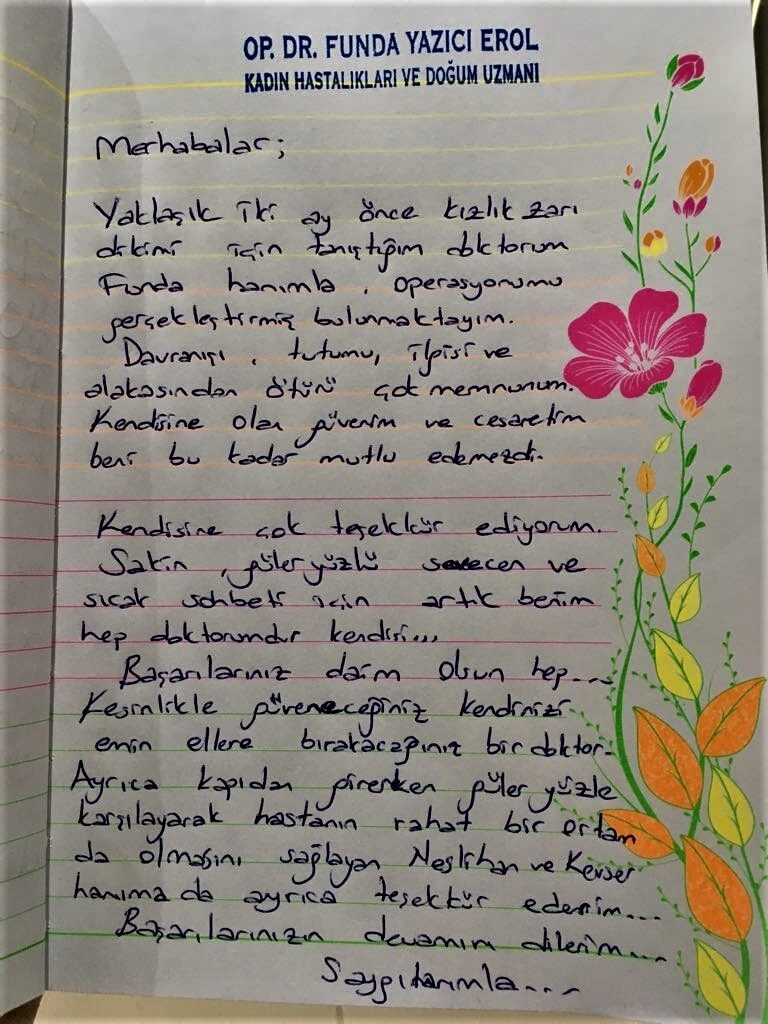 OP. DR. FUNDA YAZICI EROL
KADIN HASTALIKLARI VE DOĞUM UZMANI
Merhabalar;
Yaklaşık iki ay önce kızlık zarı
dikimi için tanıştığım doktorum
Funda hanımla, operasyonumu
gerçekleştirmiş bulunmaktayım.
Davranışı, tutumu, ilgisi ve
alakasından ötürü çok memnunum.
Kendisine olan güvenim ve cesaretim
beni bu kadar mutlu edemezdi.
Kendisine çok teşekkür ediyorum.
Sakin, güler yüzlü sevecen ve
sıcak sohbeti için artık benim
hep doktorumdur kendisi...
Başarılarınız daim olsun hep...
Kesinlikle güveneceğiniz kendinizi
emin ellere bırakacağınız bir doktor.
Ayrıca kapıdan girerken güler yüzle
karşılayarak hastanın rahat bir ortam
da olmasını sağlayan Neslihan ve Kevser
hanıma da ayrıca teşekkür ederim...
Başarılarınızın devamını dilerim...
Saygılarımla...